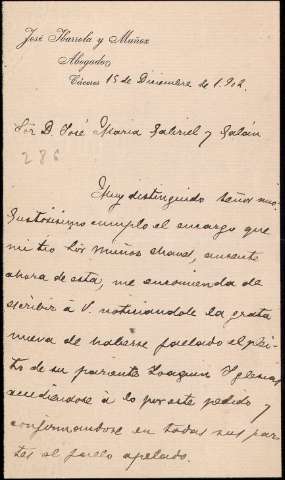 José Ibarrola y Muñoz
Abogado
Cáceres 15 de Diciembre de 1.902.
Sor D. José Maria Gabriel y Galán
286
Muy distinguido señor mio:
Gustosisimo cumplo el encargo que
mi tio Luis Muñoz Chaves, ausente
ahora de esta, me encomienda de
escribir á V. noticiandole la grata
nueva de haberse fallado el plei-
to de su pariente Joaquin Yglesias
accediendose á lo por este pedido y
confirmandose en todas sus par-
tes el fallo apelado.